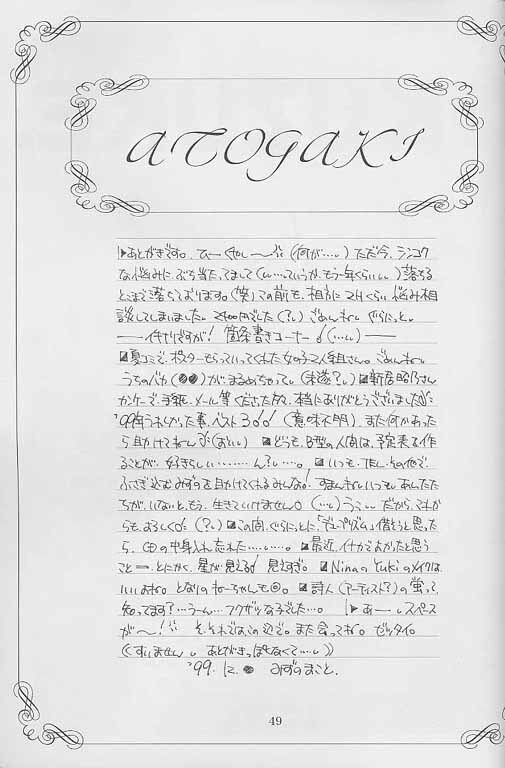 ATOGAKI
あとがきです。ひー くやしー〜 (何が…) ただ今、シンコク
な悩みに、ぶち当たってまして (い…ていうか、もう一年くらい) 落ちる
とこまで落ちております。(笑) この前も、相方に 2Hくらい 悩み相
談してしまいました。2400円でした (?) ごめんねー ぐらにっと。
― イキナリですが! 箇条書きコーナー (…) ―
夏コミで、ポスターもらっていってくれた女の子2人組さん。ごめんねー
うちのバカ (●●) が、まるめちゃって (未遂?) 新居昭乃さん
の件で、手紙、メール等くださった方、本当にありがとうございました
'99年うれしかった事、ベスト3 (意味不明) また何かあった
ら助けてねーん (おい) どうも、B型の人間は、予定表を作
ることが、好きらしい……ん?…。 いつも、TEL、その他で、
ふさぎ込むみずのを助けてくれるみんな! すまんねーいつも。あんたた
ちが、いないと、もう、生きていけません。(…) うこ… だから、これか
らも、よろしく (?) この間、ぐらにっとに「デュープリズム」借そうと思った
ら、CDの中身入れ忘れた………。 最近、イナカでよかったと思う
こと=とにかく、星が見える! 見えすぎ。 NinaのYukiのメイクは、
いいよね。となりのねーちゃんも◎。 詩人 (アーティスト?) の蛍って、
知ってます?…うーん…フクザツな子でした…。 あー スペース
が〜! そ、それではこの辺で。また会ってね。ゼッタイ。
((すいません あとがきっぽくなくて…))
'99. 12. ● みずのまこと.
49